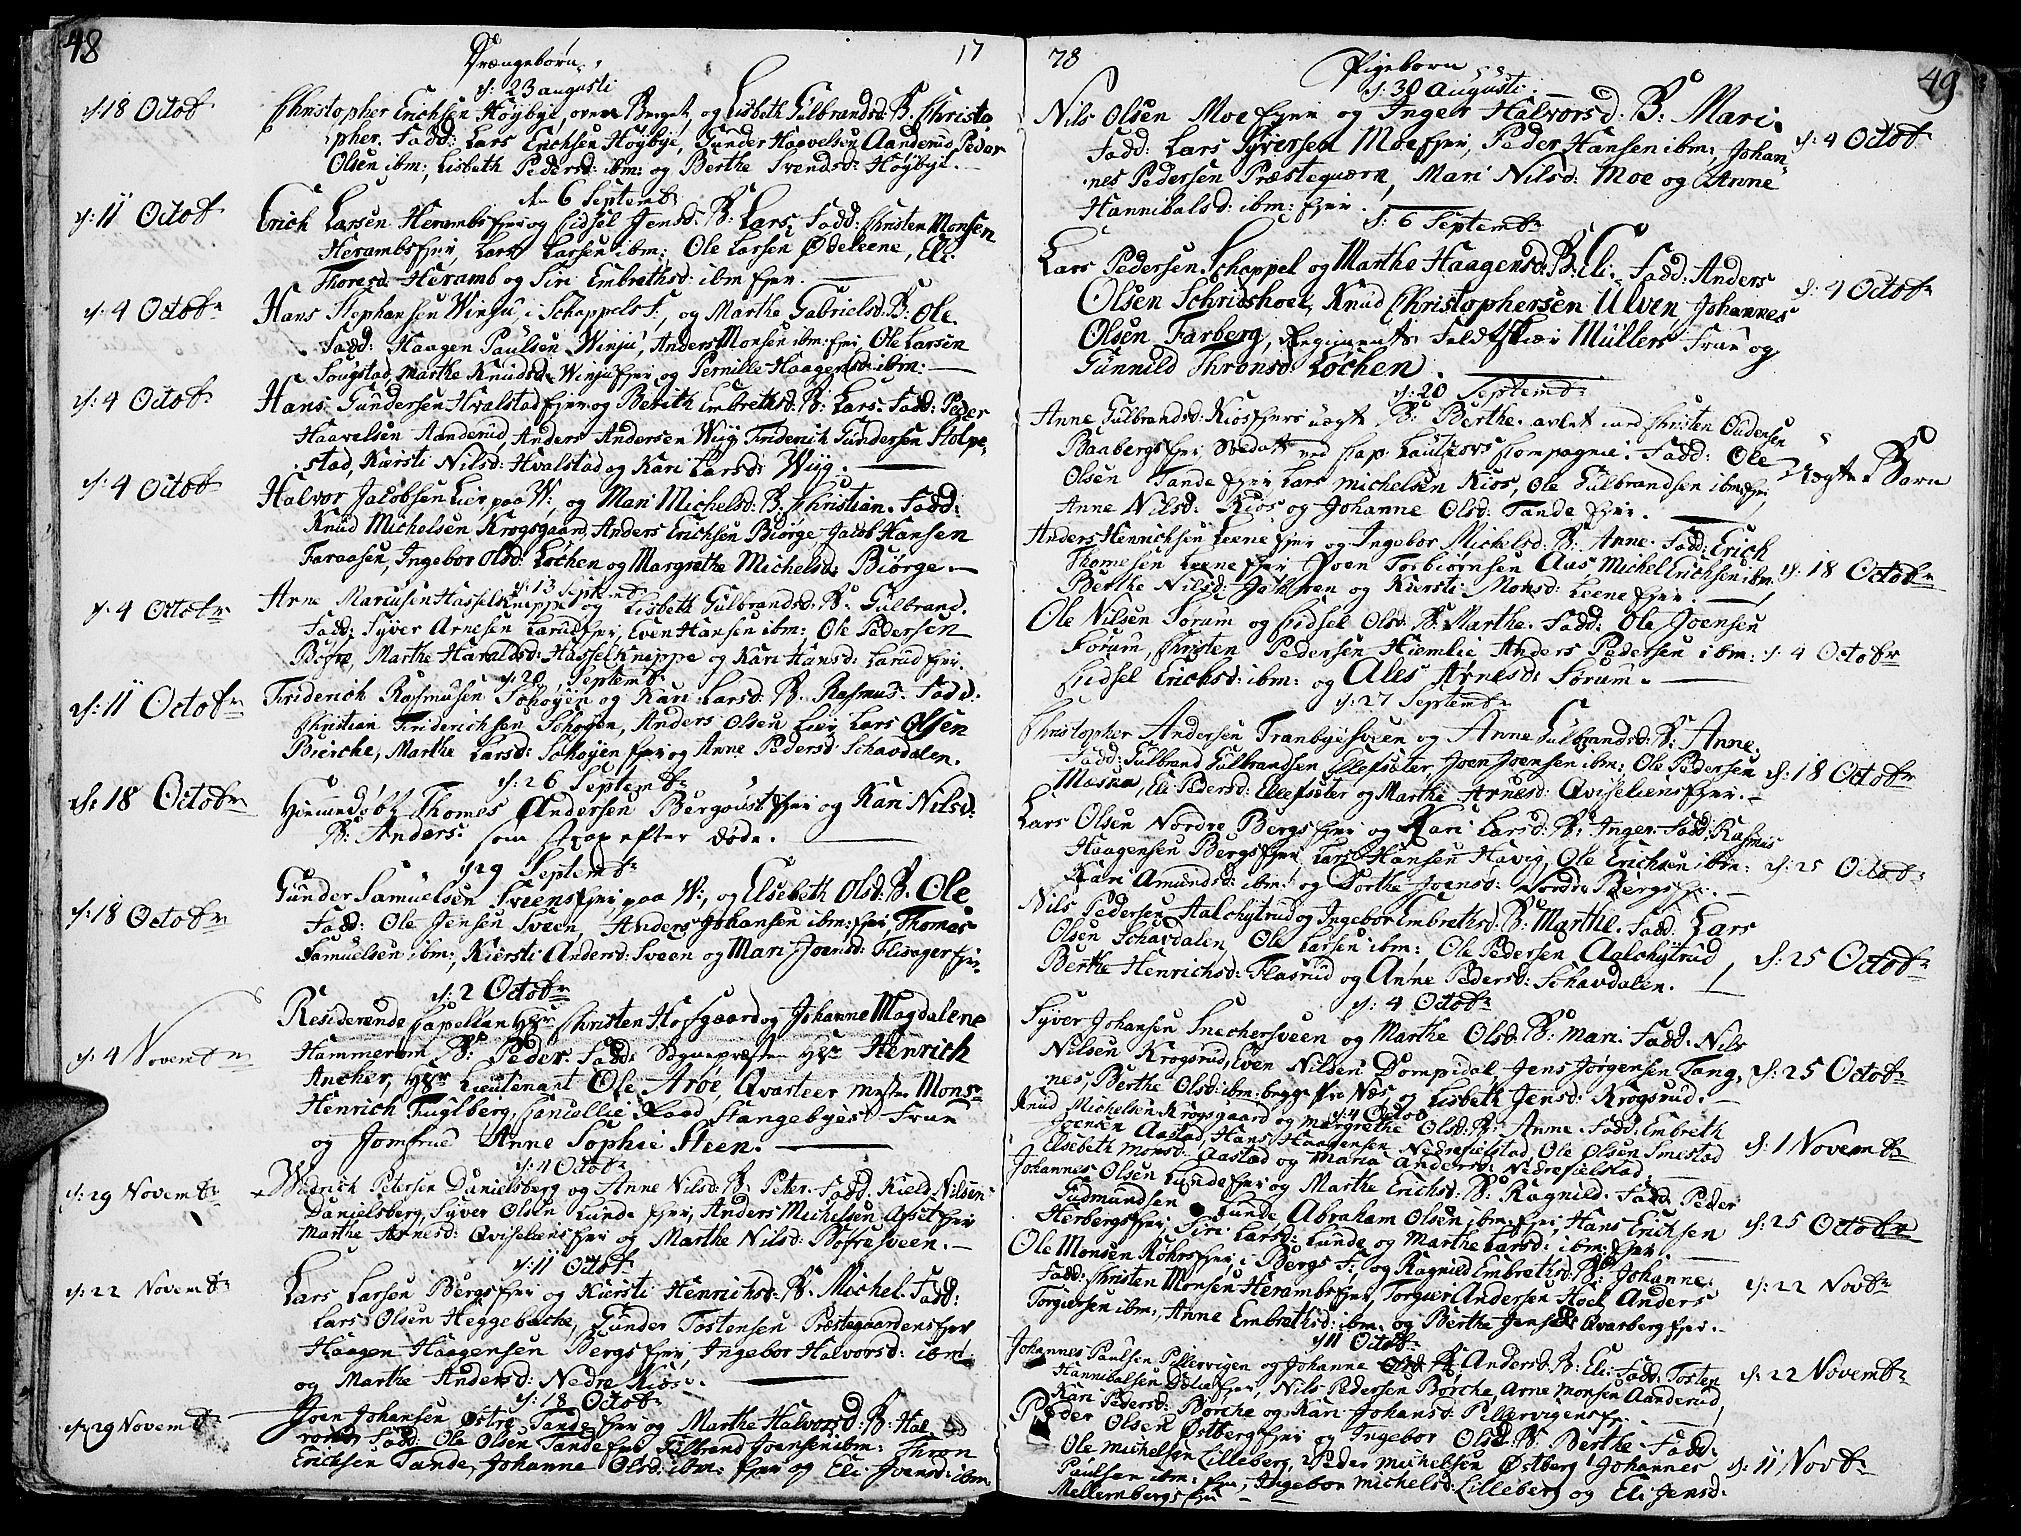 48
Drængebørn
17
d: 23 augusti
d: 18 Octob
Christopher Erichsen Høybye, oven Berget, og Lisbeth Gulbrandsd: B: Christo
pher. Fadd: Lars Erichsen Høybye, Gunder Haavelsen Aanderud Peder
Olsen ibm:, Lisbeth Pedersd: ibm: og Berthe Svendsd: Høybye.
6 Septembr
d: 11 Octobr
Erich Larsen Herambs Ejer og Sidsel Jensd: B: Lars, Fadd: Christen Monsen
Herambs Ejer, Lars Larsen ibm: Ole Larsen Ødeleene, Eli
Thoresd: Heramb og Siri Embrethsd: ibm Ejer.
d: 4 Octobr
Hans Stephansen Winju, i Schappels F:, og Marthe Gabrielsd: B: Ole.
Fadd: Haagen Paulsen Winju, Anders Monsen ibm: Ejer, Ole Larsen
Sougstad, Marthe Knudsd: Winju Ejer og Pernille Haagensd: ibm:
d: 4 Octobr
Hans Gundersen Hvalstad Ejer og Berith Embrethsd: B: Lars. Fadd: Peder
Haavelsen Aanderud Anders Andersen Wiig Friderich Gundersen Stolpe-
stad, Kiersti Nilsd: Hvalstad og Kari Larsd: Wiig.
d: 4 Octobr
Halvor Jacobsen Lier, paa W:, og Mari Michelsd: B: Christian. Fadd:
Knud Michelsen Krogsgaard, Anders Erichsen Biørge Jacob Hansen
Faraasen, Ingebor Olsd: Løchen og Margrethe Michelsd: Biørge.
d: 13 Septembr
d: 4 Octobr
Arne Marcusen Hasselkneppe og Lisbeth Gulbrandsd: B: Gulbrand.
Fadd: Syver Arnesen Larud Ejer, Even Hansen ibm: Ole Pedersen
Bofre, Marthe Haraldsd: Hasselkneppe og Kari Hansd: Larud Ejer.
d: 20 Septembr
d: 11 Octobr
Friderich Rasmusen Schøyen og Kari Larsd: B: Rasmus. Fadd:
Christian Friderichsen Schøyen, Anders Olsen Lier Lars Olsen
Birche, Marthe Larsd: Schøyen Ejer og Anne Pedersd: Schavdalen.
d: 26 Septembr
d: 18 Octobr
Hiemedøbt Thomes Andersen Bergoust Ejer og Kari Nilsd:
B: Anders. som strax efter døde.
d: 29 Septembr
d: 18 Octobr
Gunder Samuelsen Sveens Ejer, paa W:, og Elsebeth Olsd: B: Ole.
Fadd: Ole Jensen Sveen, Anders Johansen ibm: Ejer, Thomas
Samuelsen ibm:, Kiersti Andersd: Sveen og Mari Joensd: Flisager Ejer.
d: 2 Octobr
d: 4 Novembr
Residerende Capellan Hr Christen Hofgaard og Johanne Magdalene
Hammerom B: Peder. Fadd: Sognepræsten Hr Henrich
Ancher, Hr Lieutenant Ole Arøe, Qvarteer Mester Monsr
Henrich Fuglberg, Cancellie Raad Stangebyes Frue
og Jomfrue Anne Sophie Steen.
d: 4 Octobr
d: 29 Novembr
Didrich Petersen Danielsberg og Anne Nilsd: B: Peter. Fadd. Kield Nilsen
Danielsberg, Syver Olsen Lunde Ejer, Anders Michelsen Ejer
Marthe Arnesd: Qvisliens Ejer og Marthe Nilsd: Bofresveen.
d: 11 Octobr
d: 22 Novembr
Lars Larsen Bergs Ejer og Kiersti Henrichsd: B: Michel. Fadd:
Lars Olsen Heggebache, Gunder Tostensen Præstegaardens Ejer
Haagen Haagensen Bergs Ejer, Ingebor Halvorsd: ibm
og Marthe Andersd: Nedre Kios.
d: 18 Octobr
d: 29 Novembr
Joen Johansen Østre Tande Ejer og Marthe Halvorsd: B: Hal
vor. Fadd: Ole Olsen Tande Ejer Gulbrand Joensen ibm: Thron
Erichsen Tande, Johanne Olsd: ibm: Ejer og Eli Joensd: ibm.
78
Pigebørn
49
d: 30 Augusti
Nils Olsen Moe Ejer og Inger Halvorsd: B: Mari.
d: 4 Octobr
Fadd: Lars Syversen Moe Ejer, Peder Hansen ibm:, Johan
nes Pedersen Præsteqværn, Mari Nilsd: Moe og Anne
Hannibalsd: ibm: Ejer.
d: 6 Septembr
Lars Pedersen Schappel og Marthe Haagensd: B: Eli. Fadd: Anders
d: 4 Octobr
Olsen Schridshoel, Knud Christophersen Ulven Johannes
Olsen Farberg, Regiments Feldtskiær Müllers Frue og
Gunnild Thronsd: Løchen.
d: 20 Septembr
Anne Gulbrandsd: Kios Ejers uægte B: Berthe. avlet med Christen Gudersen
Baabergs Ejer, Soldat ved Cap: Lautzovs Compagnie. Fadd: Ole
Uægte Barn
Olsen Tande Ejer Lars Michelsen Kios, Ole Gulbrandsen ibm: Ejer,
Anne Nilsd: Kios og Johanne Olsd: Tande Ejer.
Anders Henrichsen Leene Ejer og Ingebor Michelsd: B: Anne. Fadd: Erich
Thomesen Leene Ejer Joen Torbiørnsen Aas Michel Erichsen ibm:
d: 18 Octobr
Berthe Nilsd: Jøhlren og Kiersti Monsd: Leene Ejer.
Ole Nilsen Sorum og Sidsel Olsd: B: Marthe. Fadd: Ole Joensen
Sorum, Christen Pedersen Hiemlie Anders Pedersen ibm:
d: 4 Octobr
Sidsel Erichsd: ibm: og Ales Arnesd: Sorum.
d: 27 Septembr
Christopher Andersen Tranbyesveen og Anne Gulbrandsd: B: Anne.
Fadd: Gulbrand Gulbrandsen Ellefsæter Joen Joensen ibm: Ole Pedersen
d: 18 Octobr
Mæhlum, Eli Pedersd: Ellefsæter og Marthe Arnesd: Qvisliens Ejer.
Lars Olsen Nordre Bergs Ejer og Kari Larsd: B: Inger. Fadd: Rasmus
Haagensen Bergs Ejer Lars Hansen Havig, Ole Erichsen ibm:
d: 25 Octobr
Kari Amundsd: ibm: og Dorthe Joensd: Nordre Bergs Ejer.
Nils Pedersen Aalchytrud og Ingebor Embrethsd: B: Marthe. Fadd: Lars
Olsen Schavdalen Ole Larsen ibm: Ole Pedersen Aalchytrud
d: 25 Octobr
Berthe Henrichsd: Flasrud og Anne Pedersd: Schavdalen.
d: 4 Octobr
Syver Johansen Snechersveen og Marthe Olsd: B: Mari. Fadd. Nils
Nilsen Krogsrud, Even Nilsen Dompidal Jens Jørgensen Tang,
d: 25 Octobr
nes, Berthe Olsd: ibm: begge fra Næs, og Lisbeth Jensd: Krogsrud.
d: 4 Octob
Knud Michelsen Krogsgaard og Margrethe Olsd: B: Anne. Fadd: Embreth
Joensen Aastad, Hans Haagensen Nedrefielstad, Ole Olsen Smestad
d: 1 Novembr
Elsebeth Monsd: Aastad og Maria Andersd: Nedrefielstad
Johannes Olsen Lunde Ejer og Marthe Erichsd: B: Ragnild. Fadd: Peder
Gudmundsen Lunde Abraham Olsen ibm: Ejer, Hans Erichsen
d: 25 Octobr
Herbergs Ejer, Siri Larsd: Lunde og Marthe Larsd: ibm: Ejer.
Ole Monsen Røhrs Ejer, i Bergs F: og Ragnild Embrethsd: B: Johanne.
Fadd: Christen Monsen Herambs Ejer, Torgier Andersen Hoel Anders
d: 22 Novbr
Torgiersen ibm:, Anne Embrethsd: ibm. og Berthe Jensd: Qvarberg Ejer.
d: 11 Octobr
Johannes Paulsen Pillervigen og Johanne Andersd: B: Eli. Fadd: Tosten
Hannibalsen Dælie Ejer, Nils Pedersen Børche, Arne Monsen Aanderud,
d: 22 Novembr
Kari Pedersd: Børche og Kari Johansd: Pillervigens Ejer
Peder Olsen Østberg Ejer og Ingebor Olsd: B: Berthe. Fadd:
Ole Michelsen Lilleberg, Peder Michelsen Østberg Johannes
d: 11 Novbr
Paulsen ibm: Ejer, Ingebor Michelsd: Lilleberg og Eli Jensd:
Mellembergs Ejer